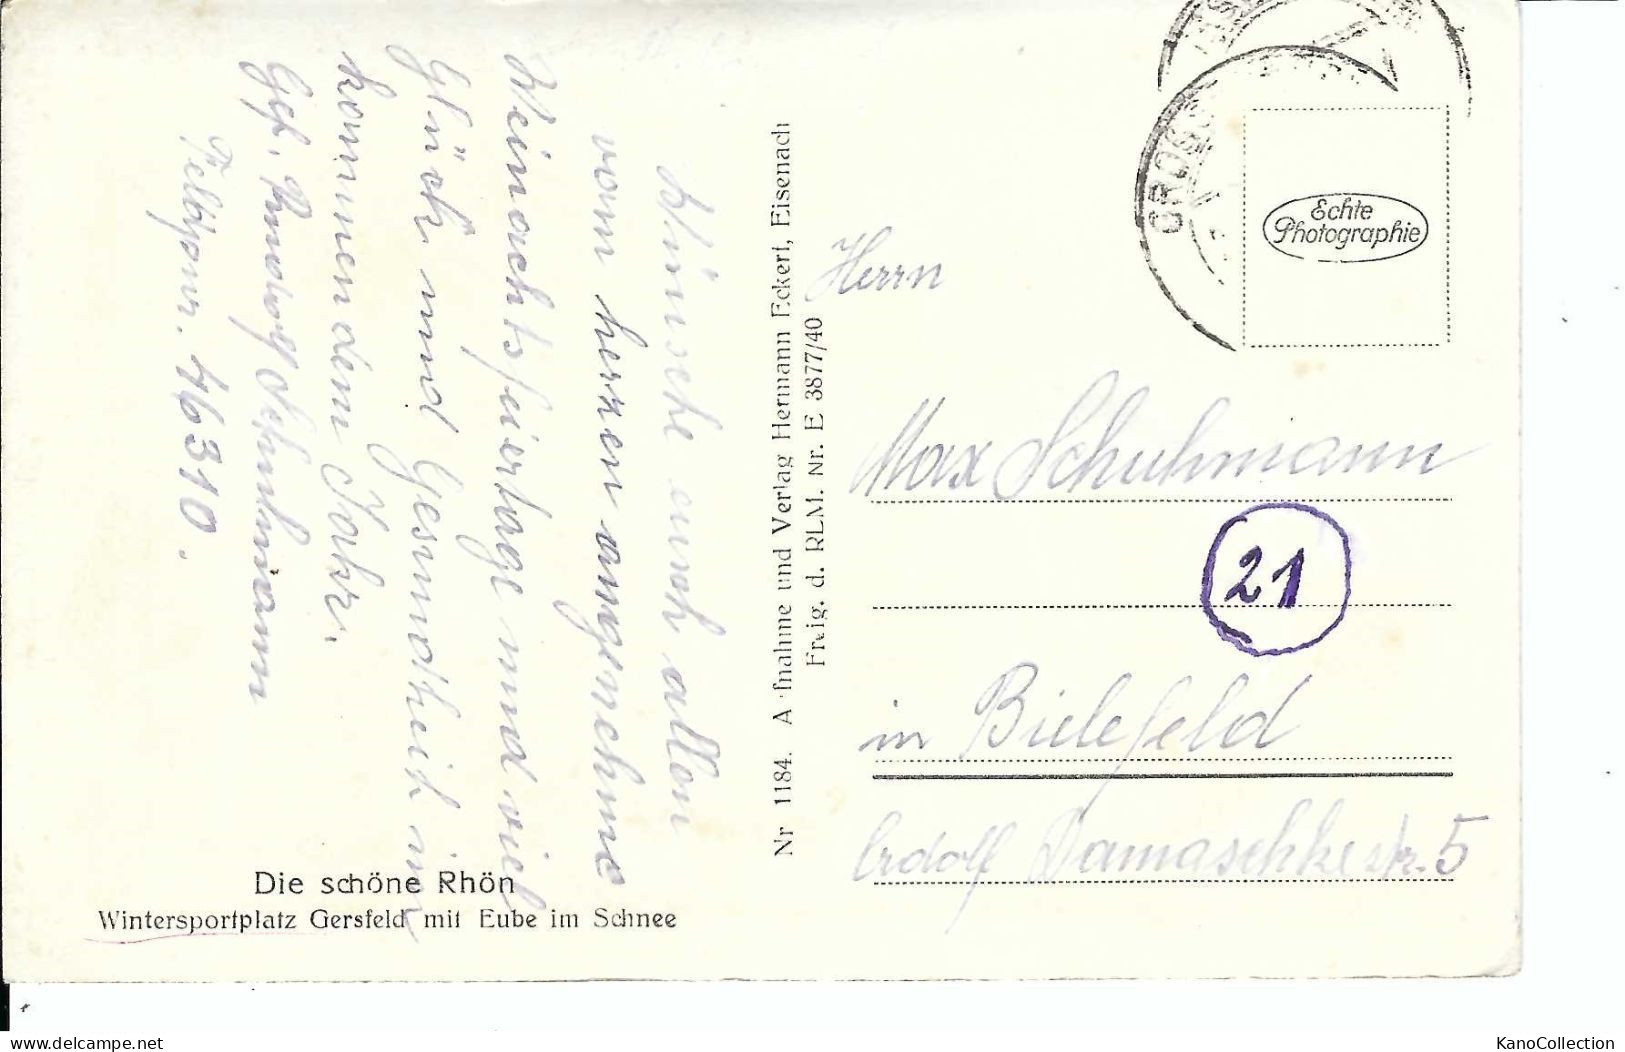 Wünsche euch allen
vom herzen angenehme
Weinachtsfeiertage und viel
Glück und Gesundheit im
kommendem Jahr.
Gef. Schuhmann
Feldpnr. 46310.
Die schöne Rhön
Wintersportplatz Gersfeld mit Eube im Schnee
Nr 1184. A fnahme und Verlag Hermann Eckert, Eisenach
Freig. d. RLM. Nr. E 3877/40
GROSS
Echte
Photographie
Herrn
Max Schuhmann
21
in Bielefeld
Damaschkestr. 5
delcampe.net
KanoCollection